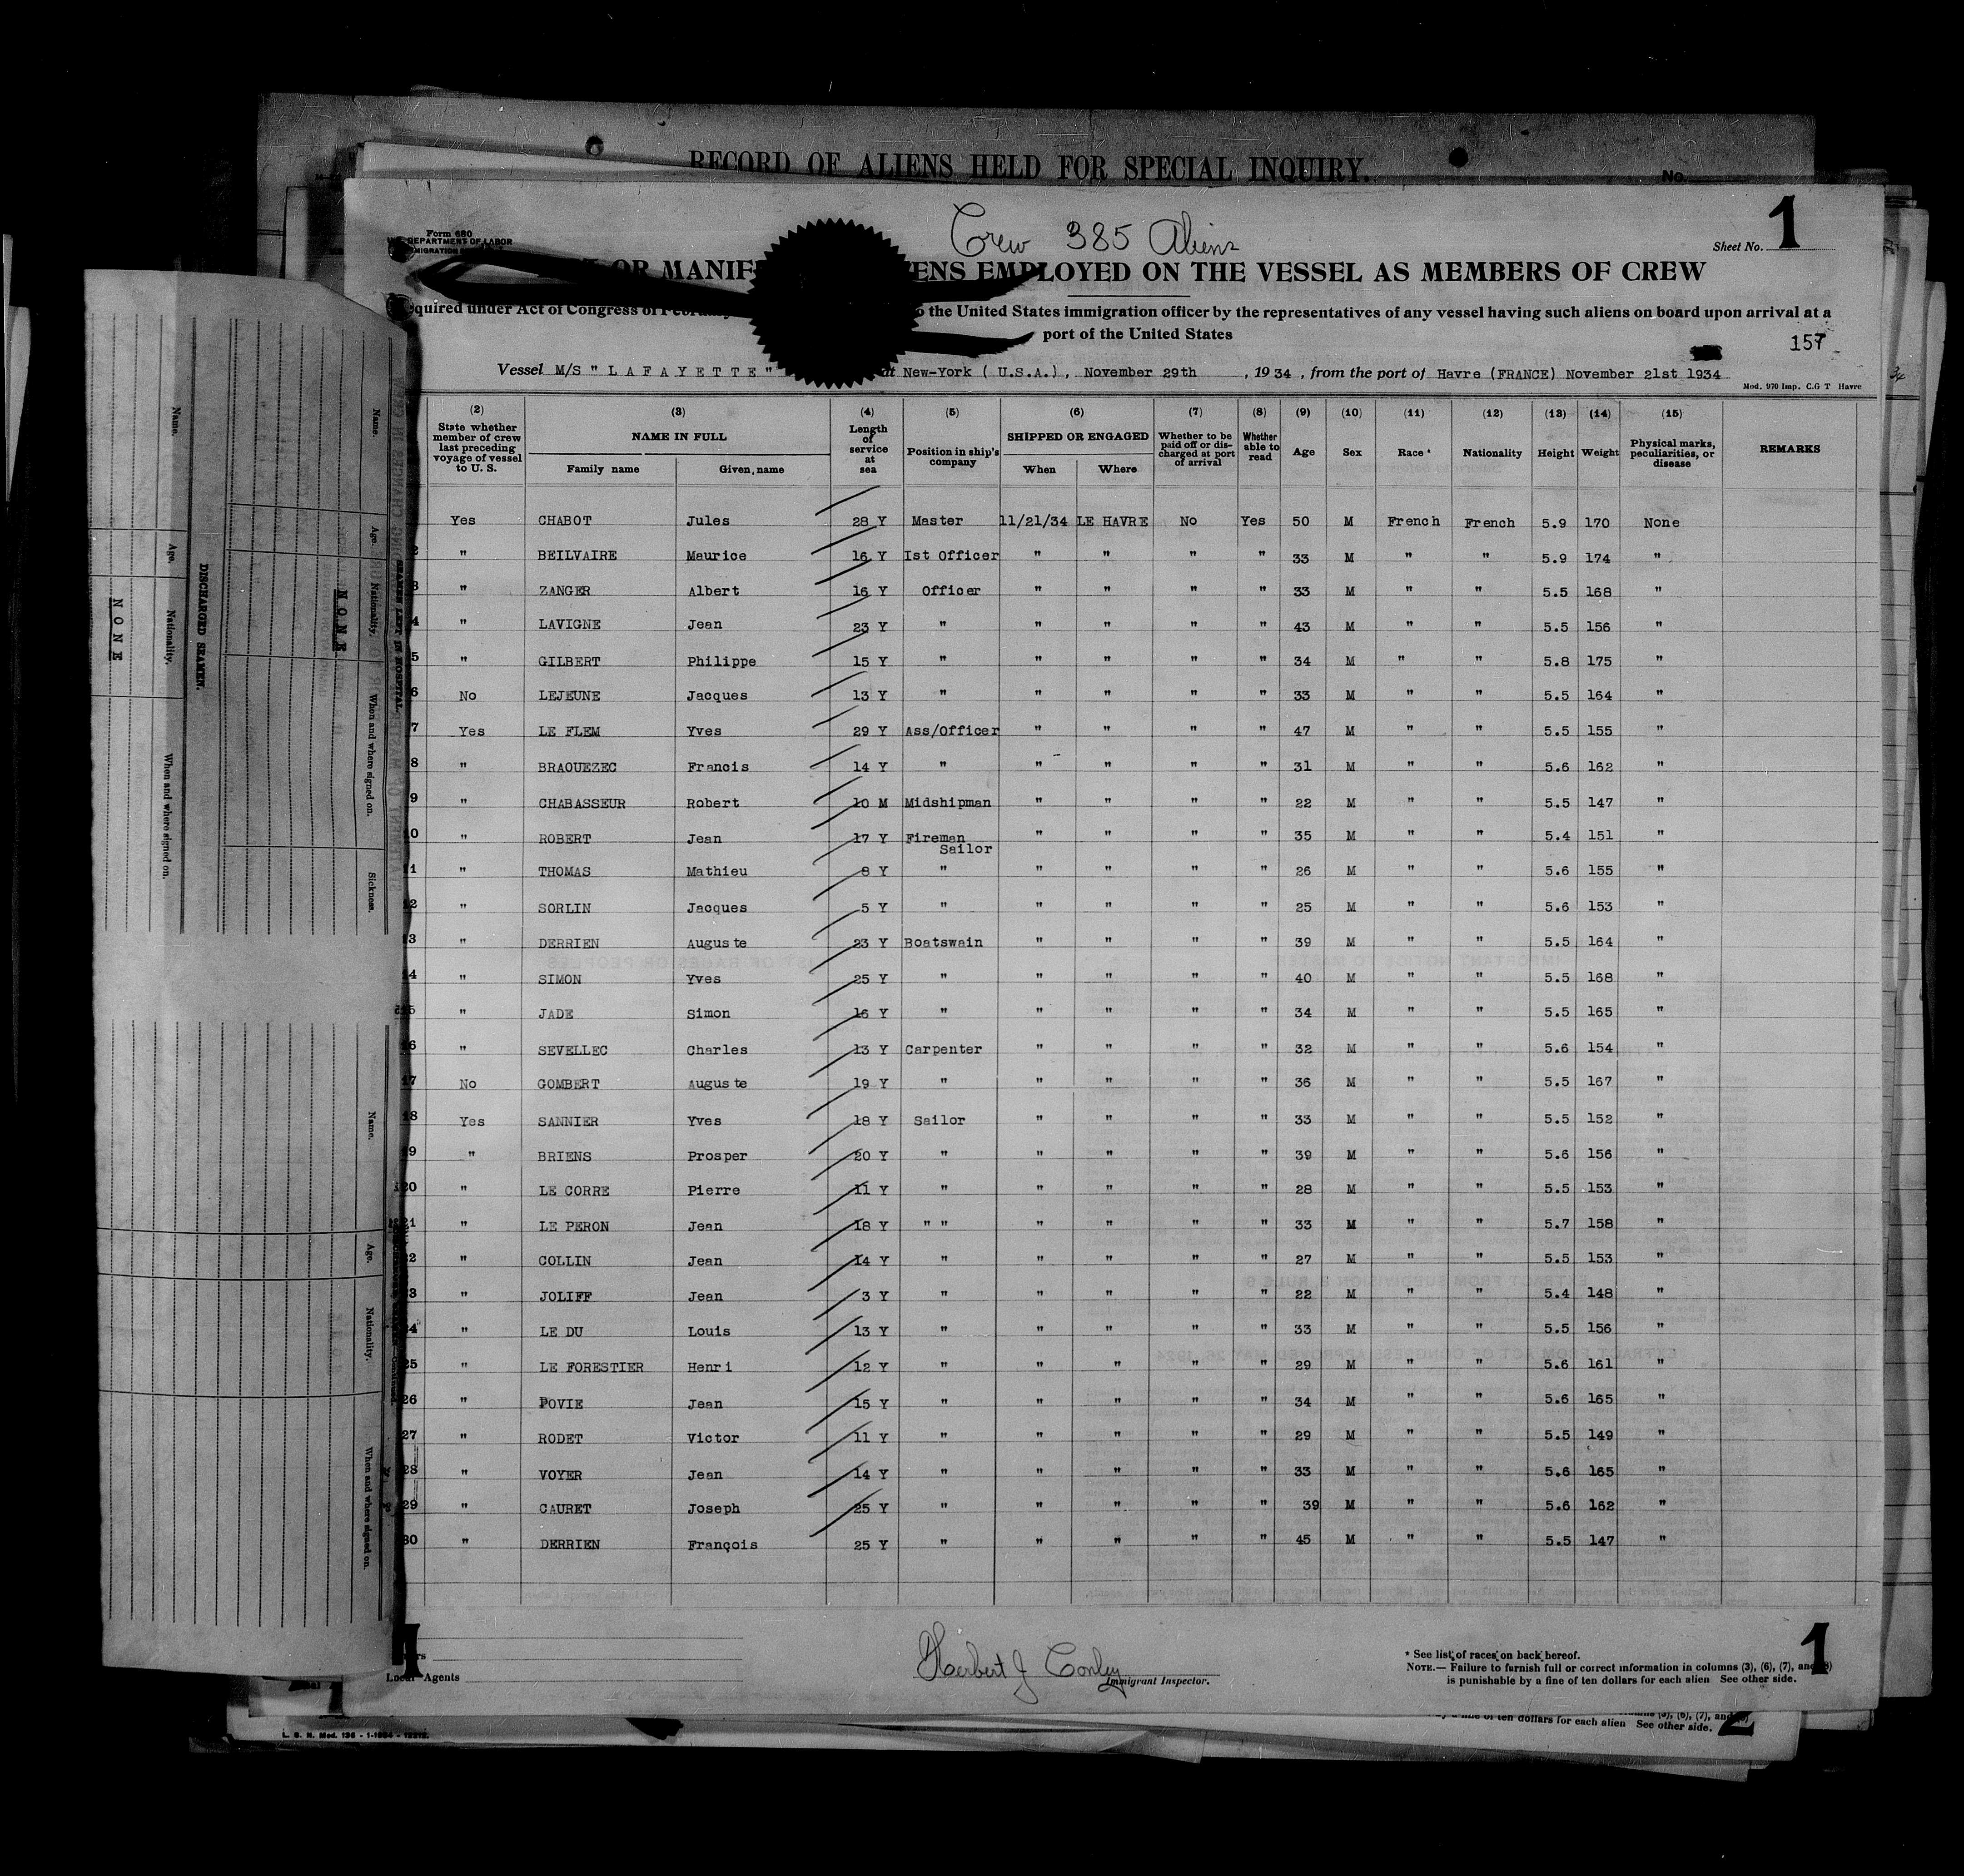 RECORD OF ALIENS HELD FOR SPECIAL INQUIRY.
No.
Crew 385 Aliens
Form 680
DEPARTMENT OF LABOR
Sheet No. 1
OR MANIF ENS EMPLOYED ON THE VESSEL AS MEMBERS OF CREW
quired under Act of Congress of February o the United States immigration officer by the representatives of any vessel having such aliens on board upon arrival at a
port of the United States
157
Vessel M/S " LAFAYETTE " at New-York ( U.S.A.), November 29th , 1934, from the port of Havre (FRANCE) November 21st 1934
Mod. 970 Imp. C.G T Havre
(2) (3) (4) (5) (6) (7) (8) (9) (10) (11) (12) (13) (14) (15)
State whether member of crew last preceding voyage of vessel to U. S. NAME IN FULL Family name Given name Length of service at sea Position in ship's company SHIPPED OR ENGAGED When Where Whether to be paid off or discharged at port of arrival Whether able to read Age Sex Race * Nationality Height Weight Physical marks, peculiarities, or disease REMARKS
Yes CHABOT Jules 28 Y Master 11/21/34 LE HAVRE No Yes 50 M French French 5.9 170 None
2 " BEILVAIRE Maurice 16 Y Ist Officer " " " " 33 M " " 5.9 174 "
3 " ZANGER Albert 16 Y Officer " " " " 33 M " " 5.5 168 "
4 " LAVIGNE Jean 23 Y " " " " " 43 M " " 5.5 156 "
5 " GILBERT Philippe 15 Y " " " " " 34 M " " 5.8 175 "
6 No LEJEUNE Jacques 13 Y " " " " " 33 M " " 5.5 164 "
7 Yes LE FLEM Yves 29 Y Ass/Officer " " " " 47 M " " 5.5 155 "
8 " BRAOUEZEC Francis 14 Y " " " " " 31 M " " 5.6 162 "
9 " CHABASSEUR Robert 10 M Midshipman " " " " 22 M " " 5.5 147 "
10 " ROBERT Jean 17 Y Fireman Sailor " " " " 35 M " " 5.4 151 "
11 " THOMAS Mathieu 8 Y " " " " " 26 M " " 5.6 155 "
12 " SORLIN Jacques 5 Y " " " " " 25 M " " 5.6 153 "
13 " DERRIEN Auguste 23 Y Boatswain " " " " 39 M " " 5.5 164 "
14 " SIMON Yves 25 Y " " " " " 40 M " " 5.5 168 "
15 " JADE Simon 16 Y " " " " " 34 M " " 5.5 165 "
16 " SEVELLEC Charles 13 Y Carpenter " " " " 32 M " " 5.6 154 "
17 No GOMBERT Auguste 19 Y " " " " " 36 M " " 5.5 167 "
18 Yes SANNIER Yves 18 Y Sailor " " " " 33 M " " 5.5 152 "
19 " BRIENS Prosper 20 Y " " " " " 39 M " " 5.6 156 "
20 " LE CORRE Pierre 11 Y " " " " " 28 M " " 5.5 153 "
21 " LE PERON Jean 18 Y " " " " " " 33 M " " 5.7 158 "
22 " COLLIN Jean 14 Y " " " " " 27 M " " 5.5 153 "
23 " JOLIFF Jean 3 Y " " " " " 22 M " " 5.4 148 "
24 " LE DU Louis 13 Y " " " " " 33 M " " 5.5 156 "
25 " LE FORESTIER Henri 12 Y " " " " " 29 M " " 5.6 161 "
26 " POVIE Jean 15 Y " " " " " 34 M " " 5.6 165 "
27 " RODET Victor 11 Y " " " " " 29 M " " 5.5 149 "
28 " VOYER Jean 14 Y " " " " " 33 M " " 5.6 165 "
29 " CAURET Joseph 25 Y " " " " " 39 M " " 5.6 162 "
30 " DERRIEN François 25 Y " " " " " 45 M " " 5.5 147 "
Local Agents
Herbert J Conley
Immigrant Inspector.
* See list of races on back hereof.
NOTE.— Failure to furnish full or correct information in columns (3), (6), (7), and (8)
is punishable by a fine of ten dollars for each alien See other side.
1
1
of ten dollars for each alien See other side.
2
DISCHARGED SEAMEN.
Name. Age. Nationality. When and where signed on.
NONE
SEAMEN LEFT IN HOSPITAL
Name. Age. Nationality. When and where signed on. Sickness.
NONE
Name. Age. Nationality. When and where signed on.